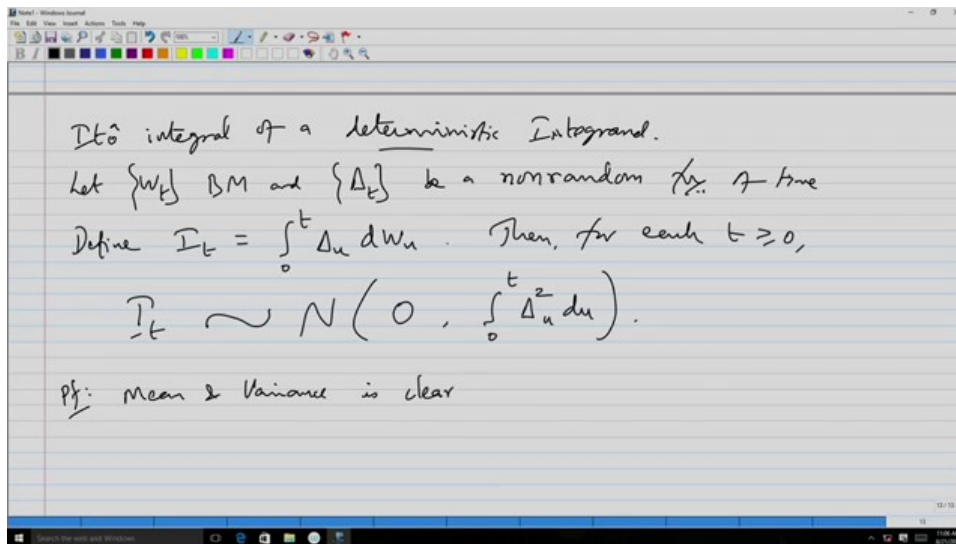 Note1 - Windows Journal
File Edit View Insert Actions Tools Help
B I
Itô integral of a deterministic Integrand.
Let {W_t} BM and {Δ_t} be a nonrandom fn. of time
Define I_t = ∫_0^t Δ_u dW_u. Then, for each t ≥ 0,
I_t ~ N(0, ∫_0^t Δ_u^2 du).
Pf: Mean & Variance is clear
13/13
13
Search the web and Windows